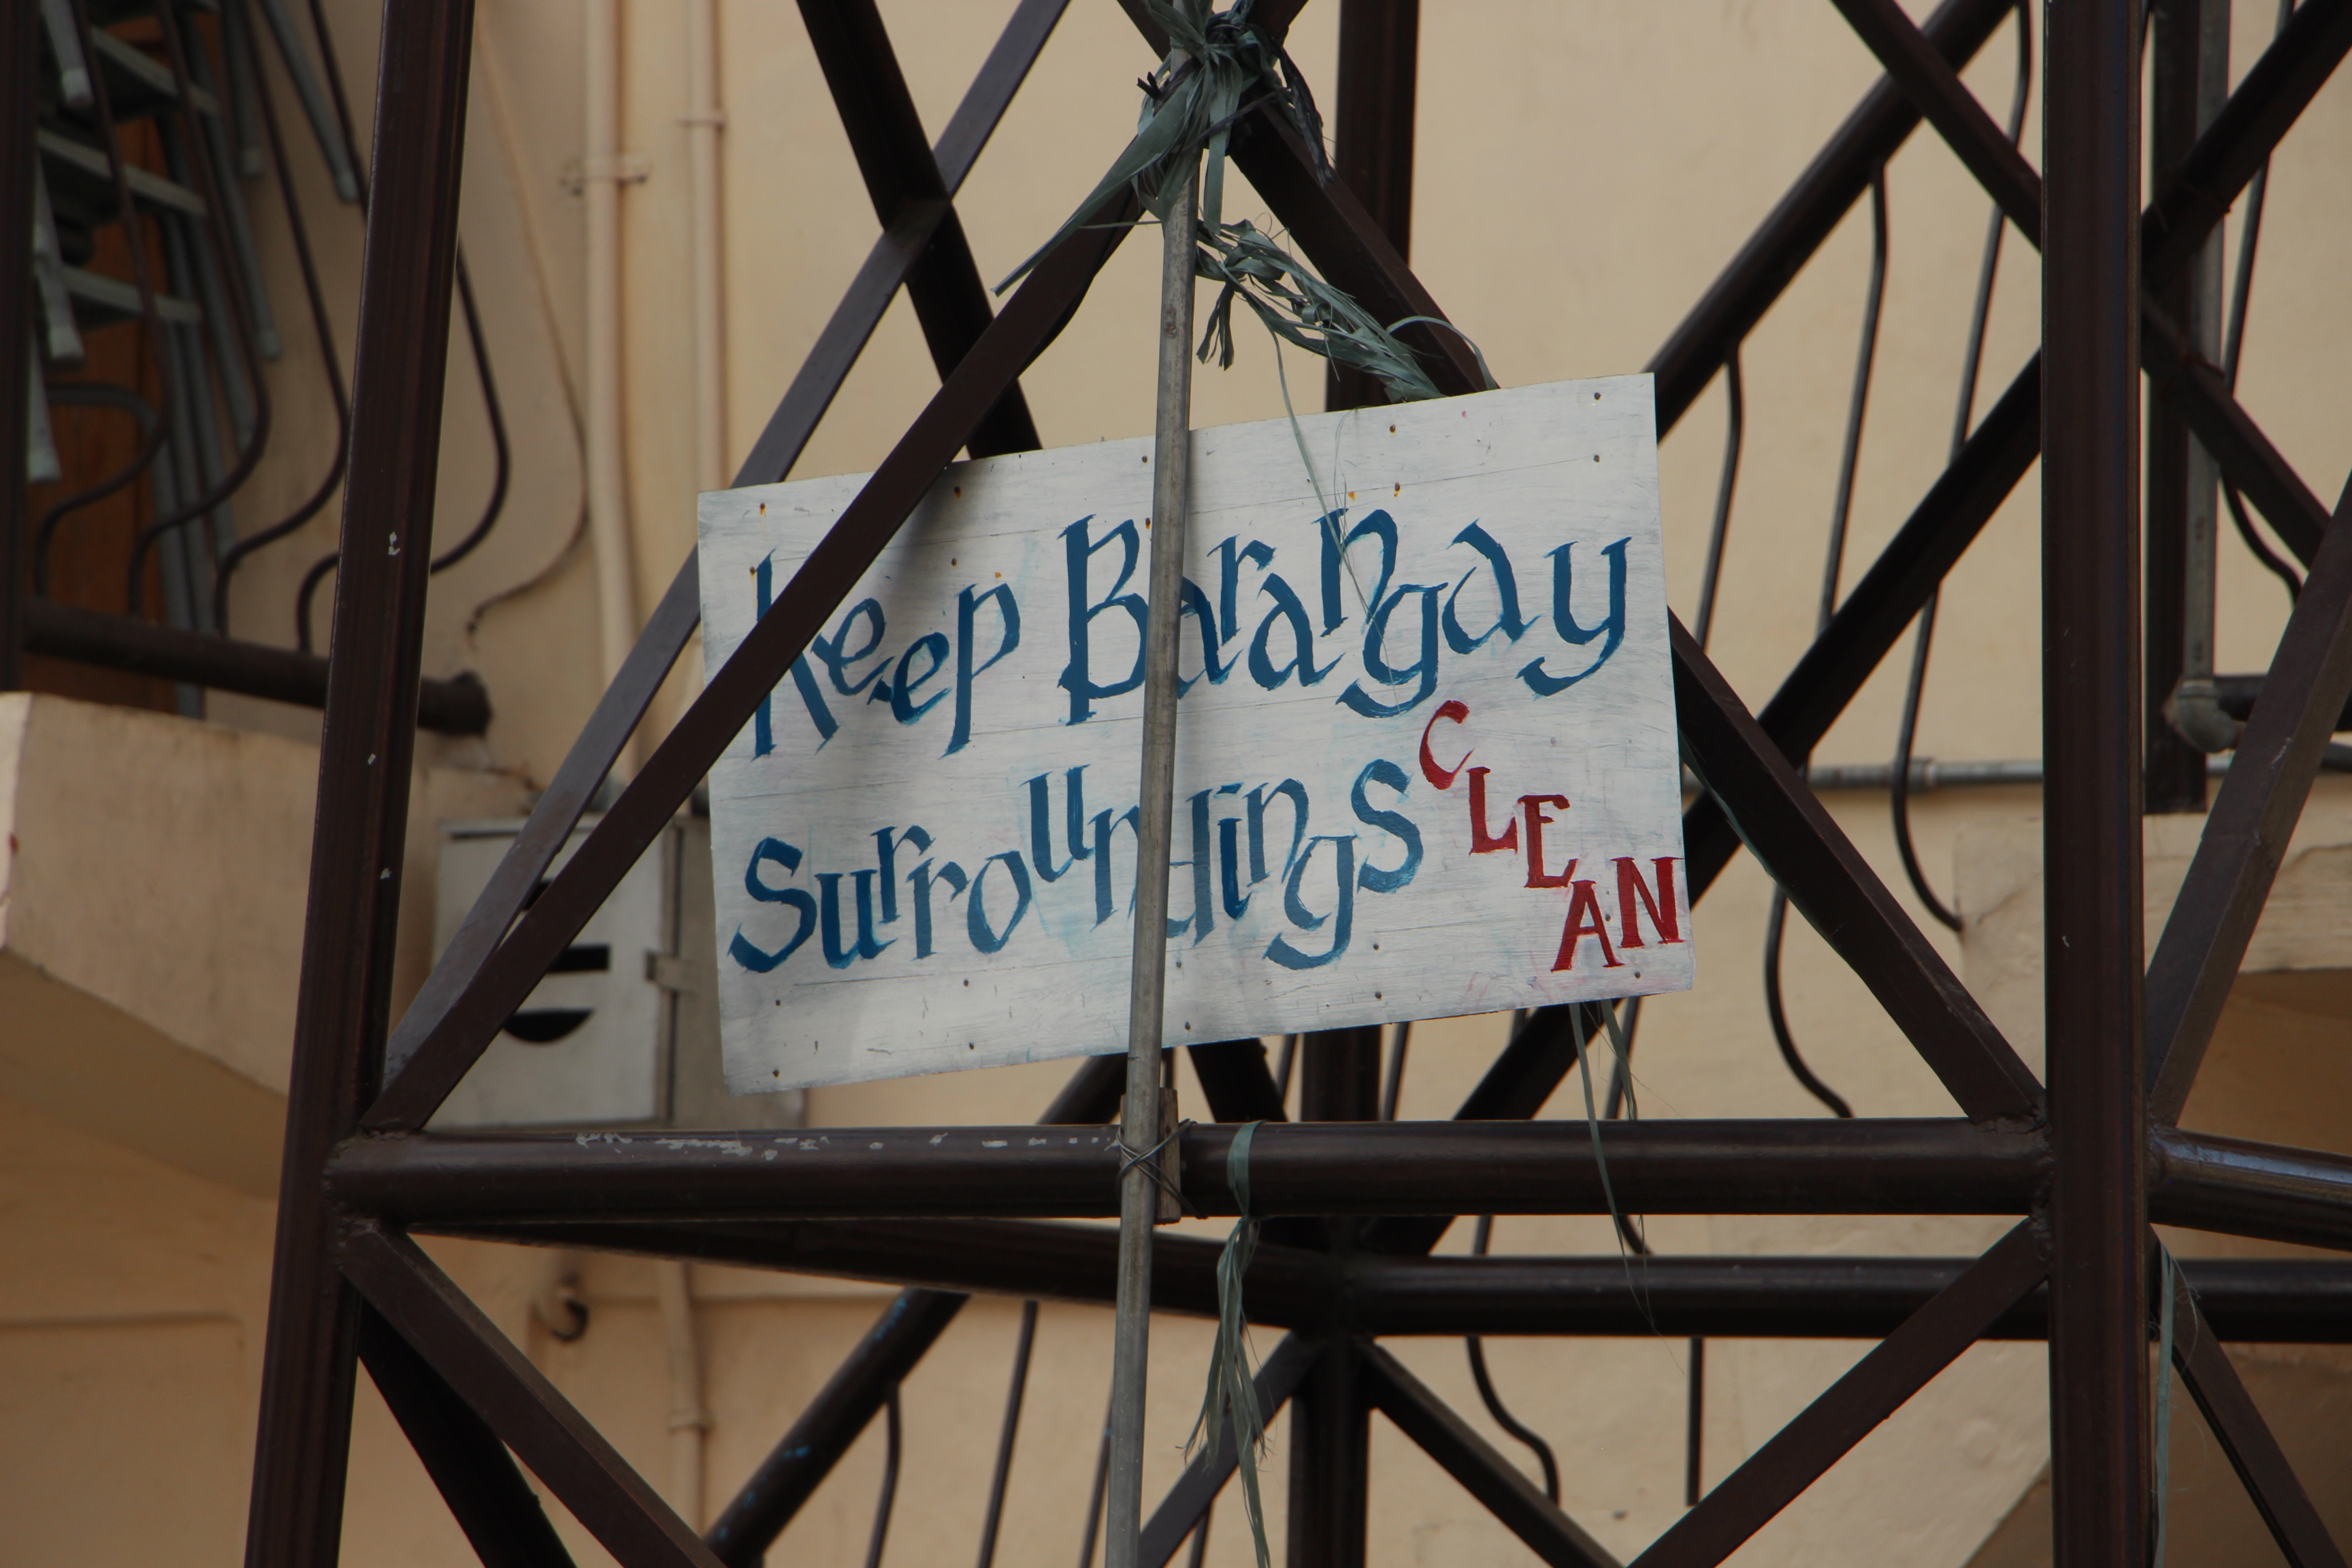 Keep Barangay
Surroundings CLEAN